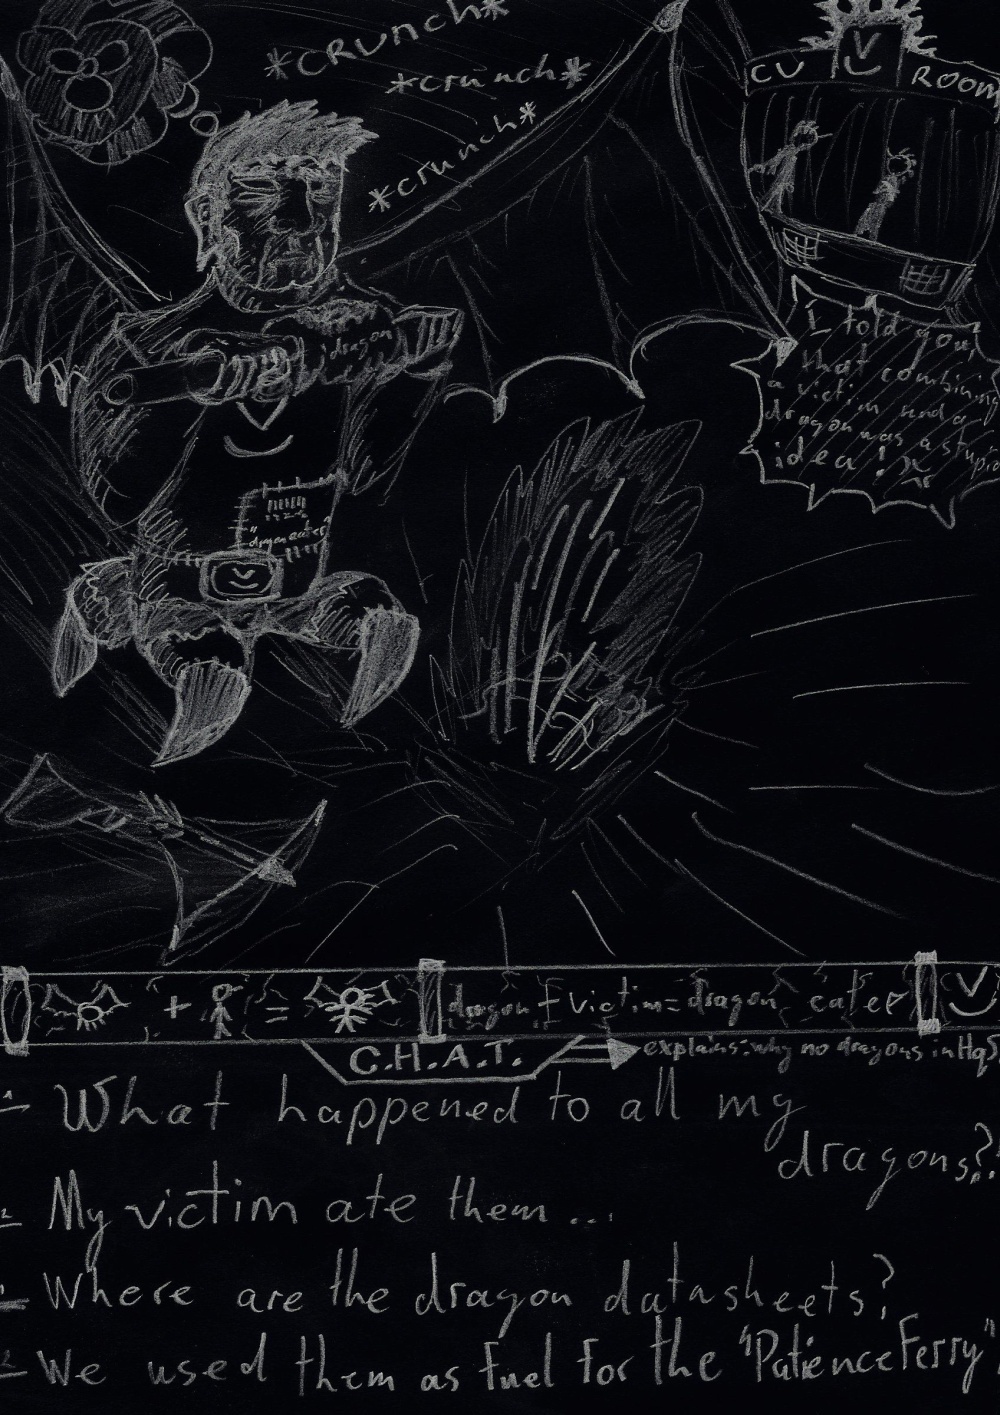 *crunch*
*crunch*
*crunch*
CV ROOM
I told you,
that combining
a victim and a
dragon was a stupid
idea!
dragon
"dragon eater"
+ =
dragon + victim = dragon eater
C.H.A.T.
explains: why no dragons in Hq5
- What happened to all my
dragons?!
- My victim ate them ...
- Where are the dragon datasheets?
- We used them as fuel for the "Patience Ferry"